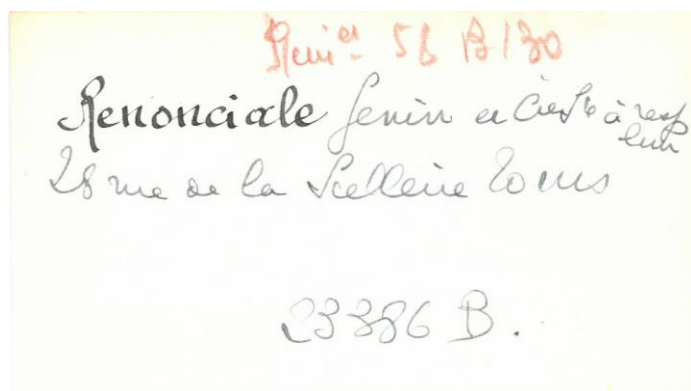 Renonciale Genin et Cie Sté à resp lim
28 rue de la Scellerie Tours
23386 B.